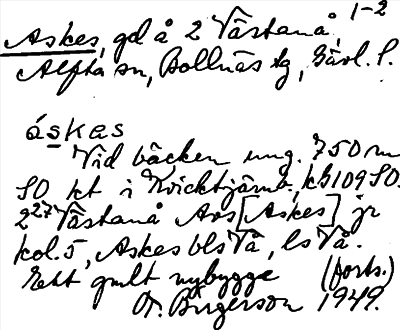 Askes, gd å 2 Västanå, 1-2
Alfta sn, Bollnäs tg, Gävl. l.
áskas
Vid bäcken ung. 750 m
SO kt i Kvicktjärnb., kb 109 SO.
2²⁷ Västanå Avs [Askes] jr
kol. 5, Askes bls Vå, ls Vå.
Ett gmlt nybygge (forts.)
O. Birgerson 1949.